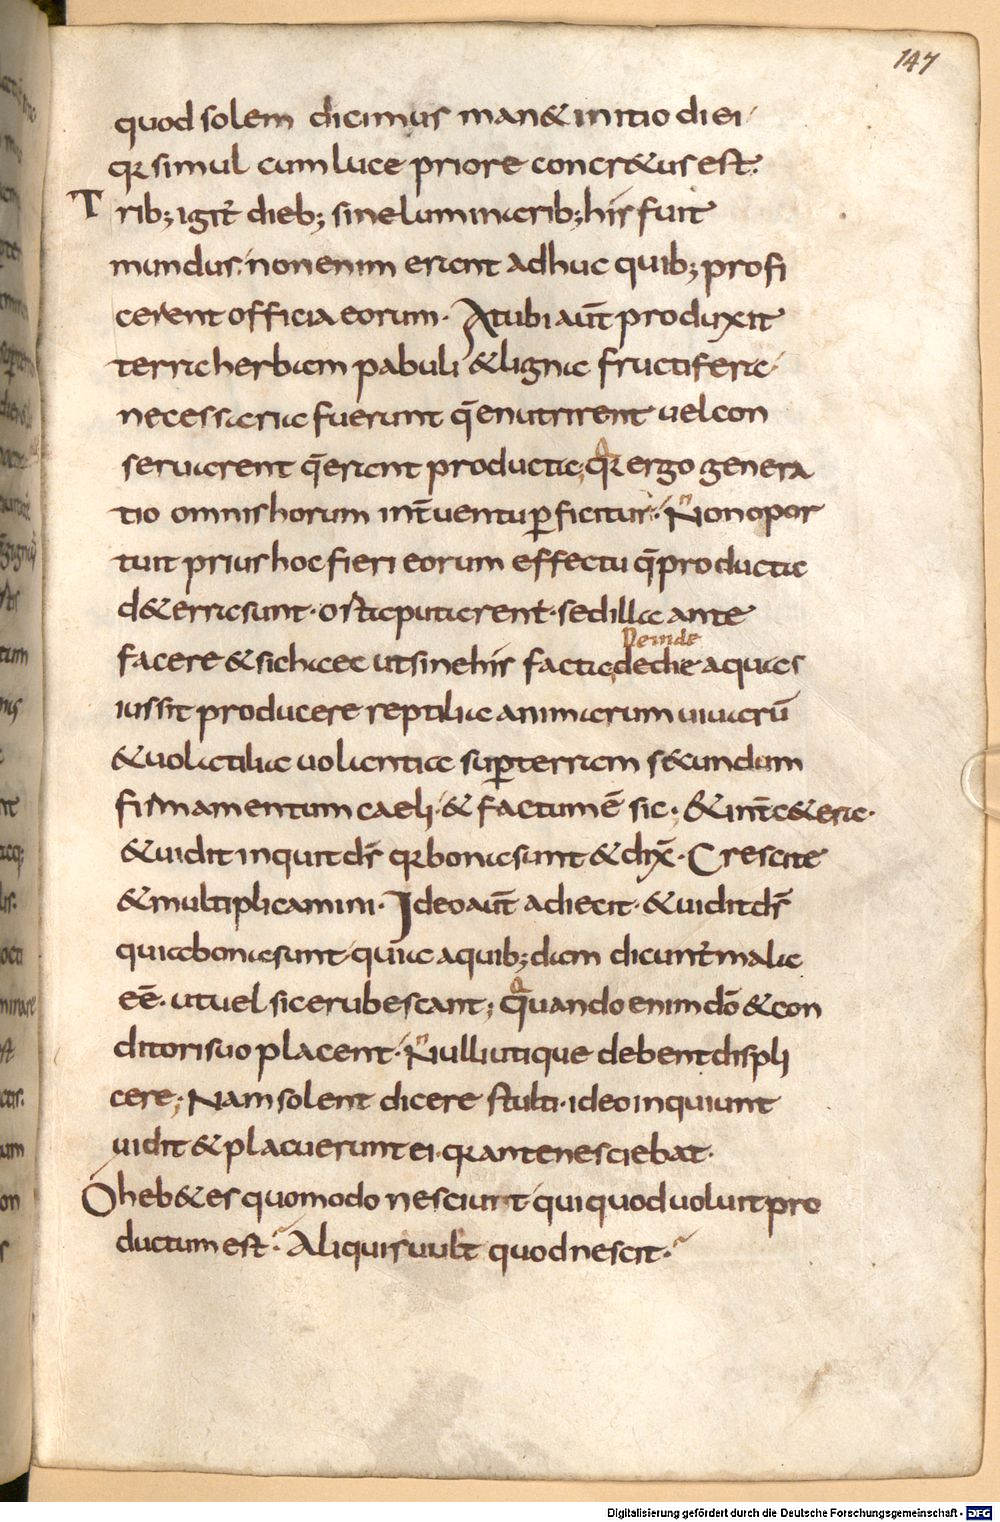 147
quod solem dicimus man& initio diei
qR simul cum luce priore concr&us est.
Trib; igit̄ dieb; sine luminarib; his fuit
mundus. non enim erant adhuc quib; profi
cerent officia eorum. At ubi aut̄ produxit
terra herbam pabuli & ligna fructifera
necessaria fuerunt q̄ enutrirent uel con
seruarent q̄ erant producta; qR ergo genera
tio omnis horum int̄uentu ꝑficitur. Non opor
tuit prius hoc fieri eorum effectu q̄ producta
d& erra sunt. ostia putarent. sed illa ante
Deinde
facere & sic haec ut sine his facta; deche aquas
iussit producere reptilia animarum uiuarū
& uolatilia uolantia suꝑ terram s&cundum
firmamentum caeli. & factum ē sic. & int̄ c&era.
& uidit inquit d̄s qR bona sunt & dix̄. Crescite
& multiplicamini. Ideo aut̄ adiecit. & uidit d̄s
quia bona sunt. quia a quib; dam dicunt̄ mala
eē. ut uel sic erubescant; Quando enim dō & con
ditori suo placent. Nulli utique debent displi
cere; Nam solent dicere stulti. ideo inquiunt
uidit & placuerunt ei. qR ante nesciebat.
O heb&es quomodo nesciunt qui quod uoluit pro
ductum est. Aliquis uult quod nescit.
Digitalisierung gefördert durch die Deutsche Forschungsgemeinschaft - DFG